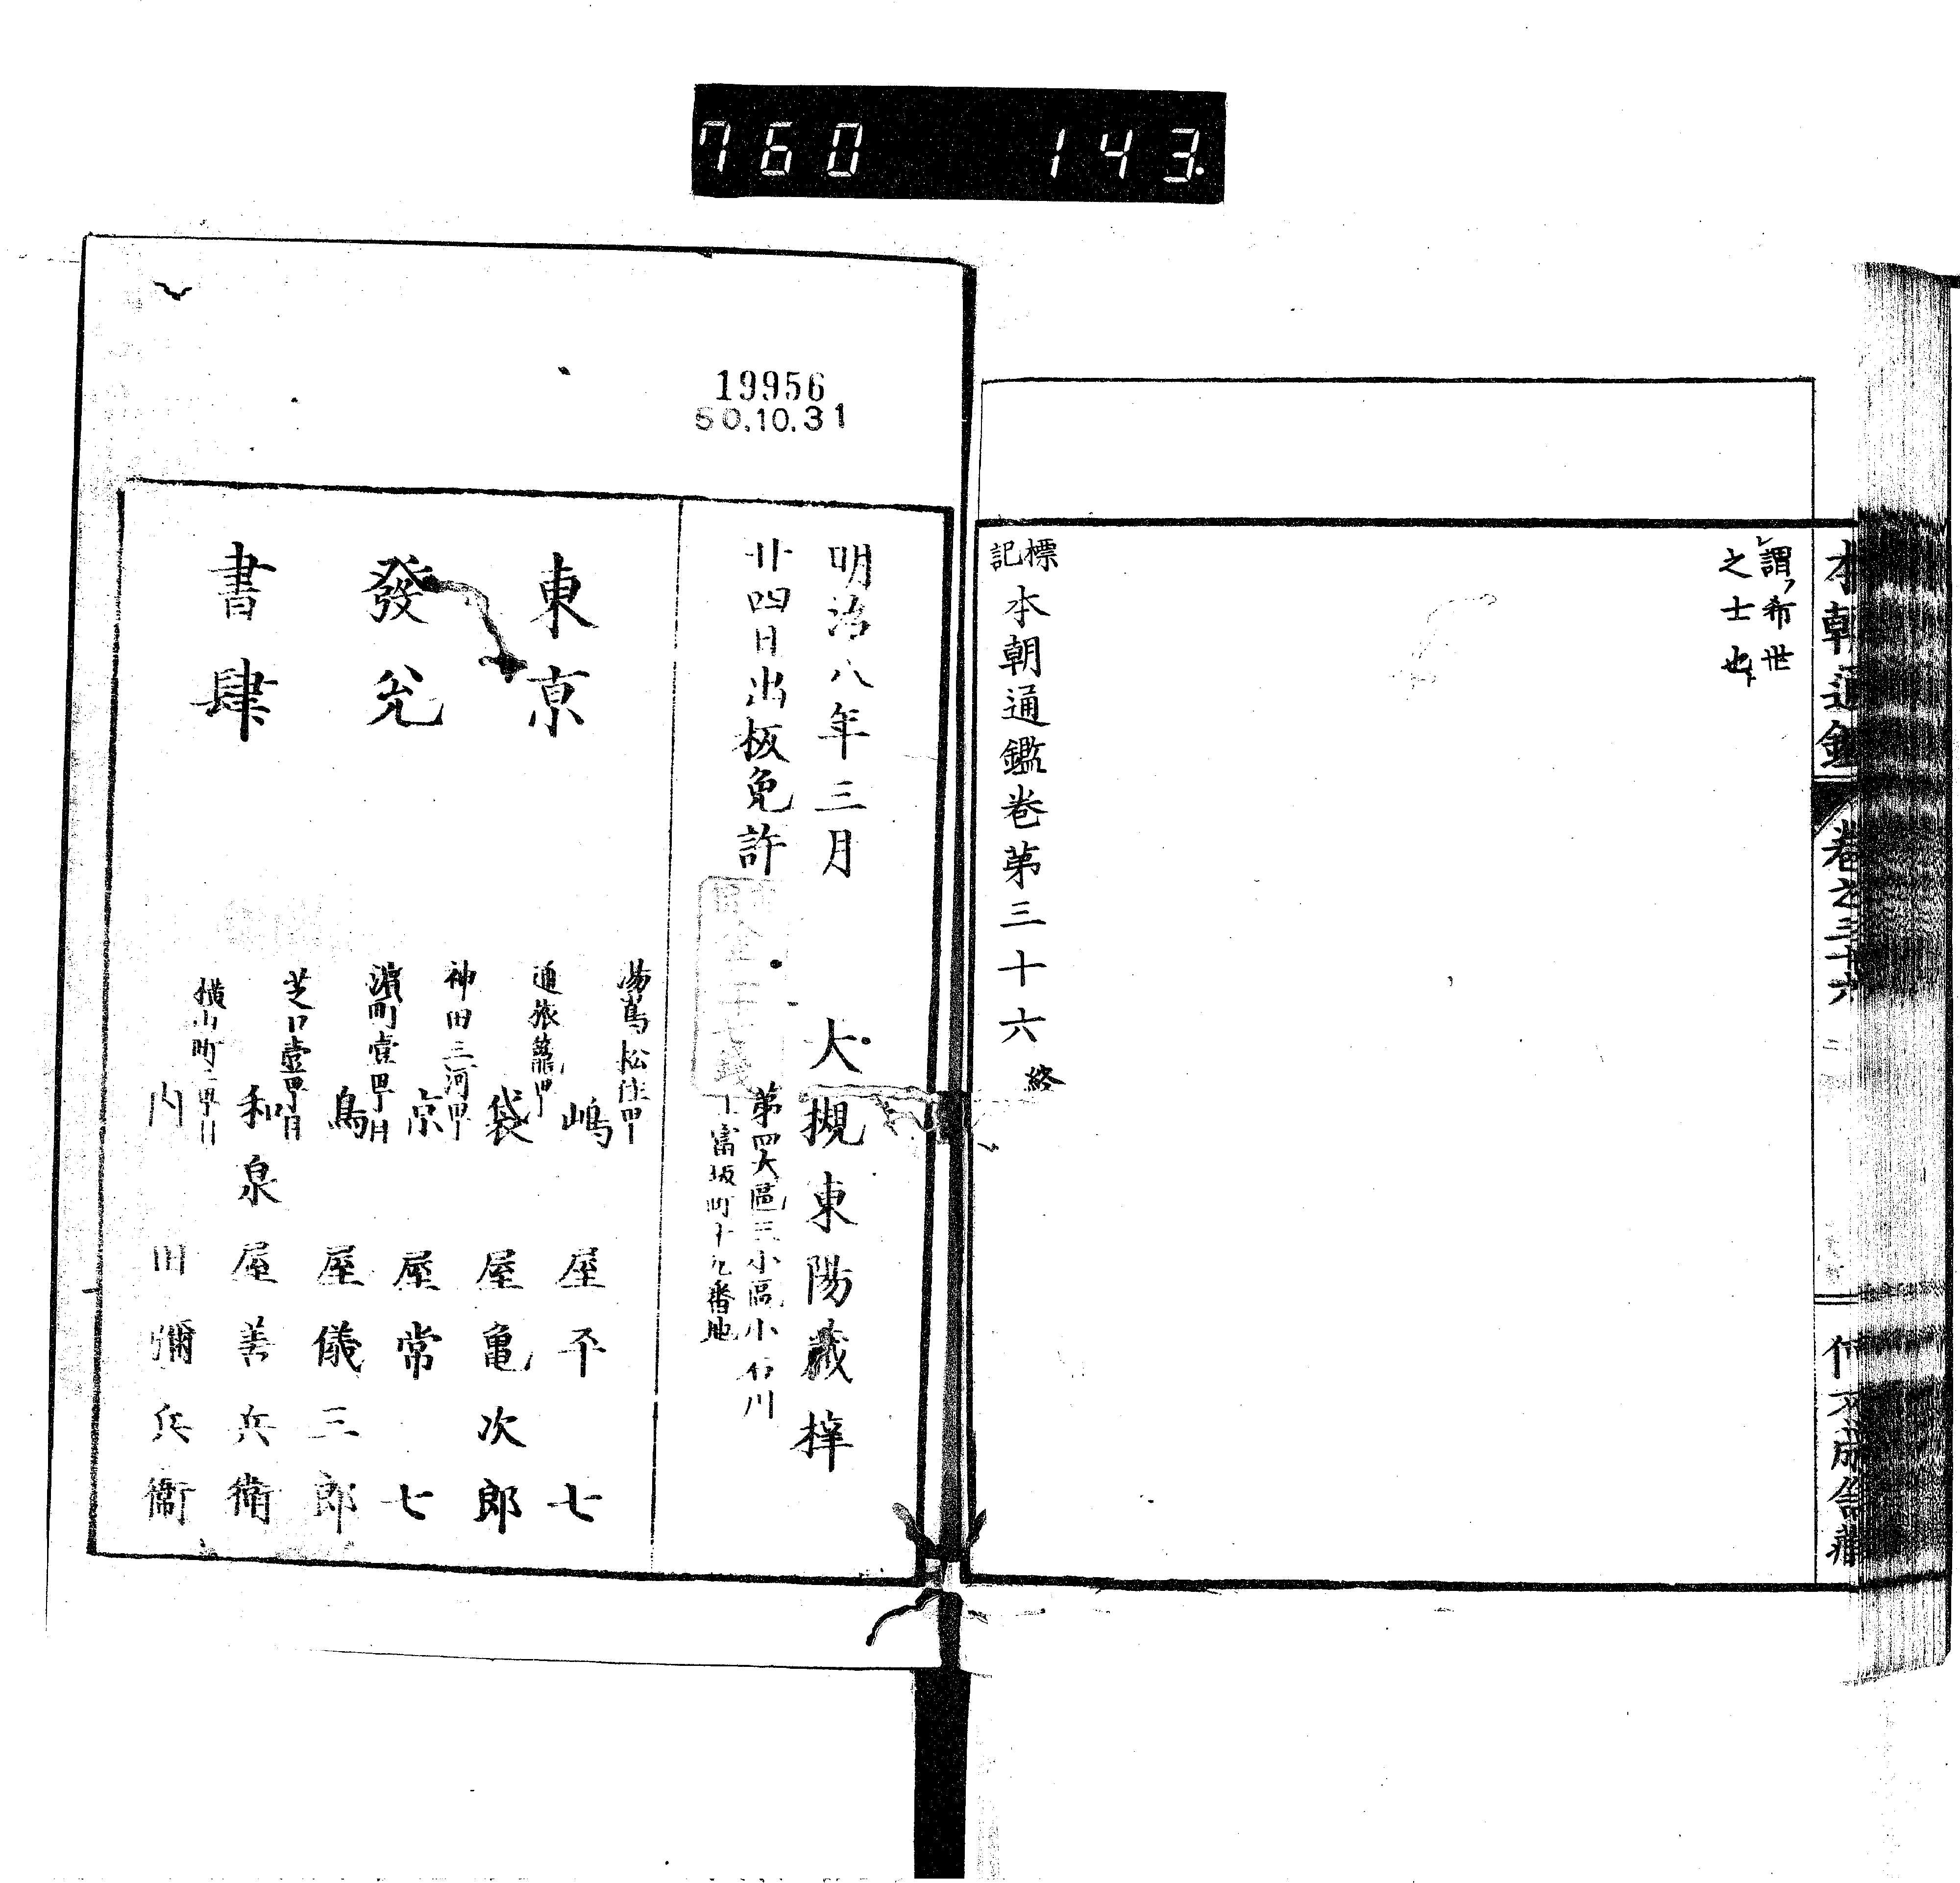 760 143
本朝通鑑
卷之三十六
謂希世
之士也
標記 本朝通鑑卷第三十六 終
19956
50.10.31
明治八年三月
廿四日出板免許
大槻東陽藏梓
第四大區三小區小石川
富坂町十九番地
東京
發兌
書肆
嶋屋平七
通旅籠町
袋屋亀次郎
神田三河町
京屋常七
濱町壹丁目
鳥屋儀三郎
芝口壹丁目
和泉屋善兵衛
横山町
内田彌兵衞